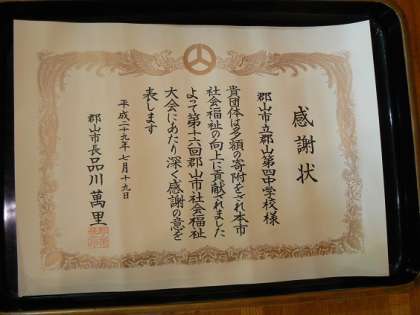 感謝状
郡山市立郡山第四中学校様
貴団体は多額の寄附をされ本市
社会福祉の向上に貢献されました
よって第十六回郡山市社会福祉
大会にあたり深く感謝の意を
表します
平成二十九年七月十九日
郡山市長品川萬里